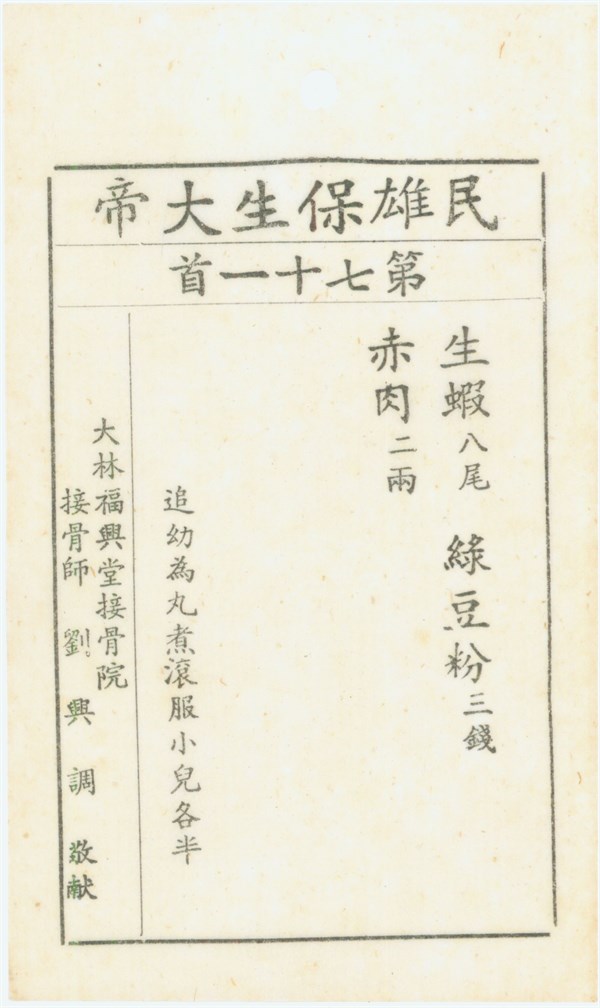 民雄保生大帝
第七十一首
生蝦八尾 綠豆粉三錢
赤肉二兩
追幼為丸煮滾服小兒各半
大林福興堂接骨院
接骨師 劉興調 敬献